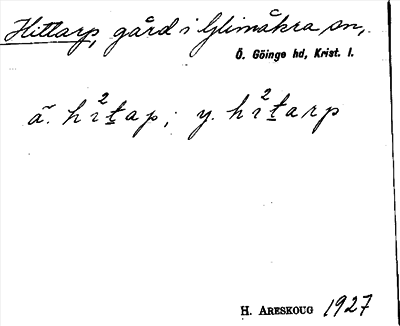 Hittarp, gård i Glimåkra sn,
Ö. Göinge hd, Krist. l.
ä. hı²tap; y. hı²tarp
H. Areskoug 1927